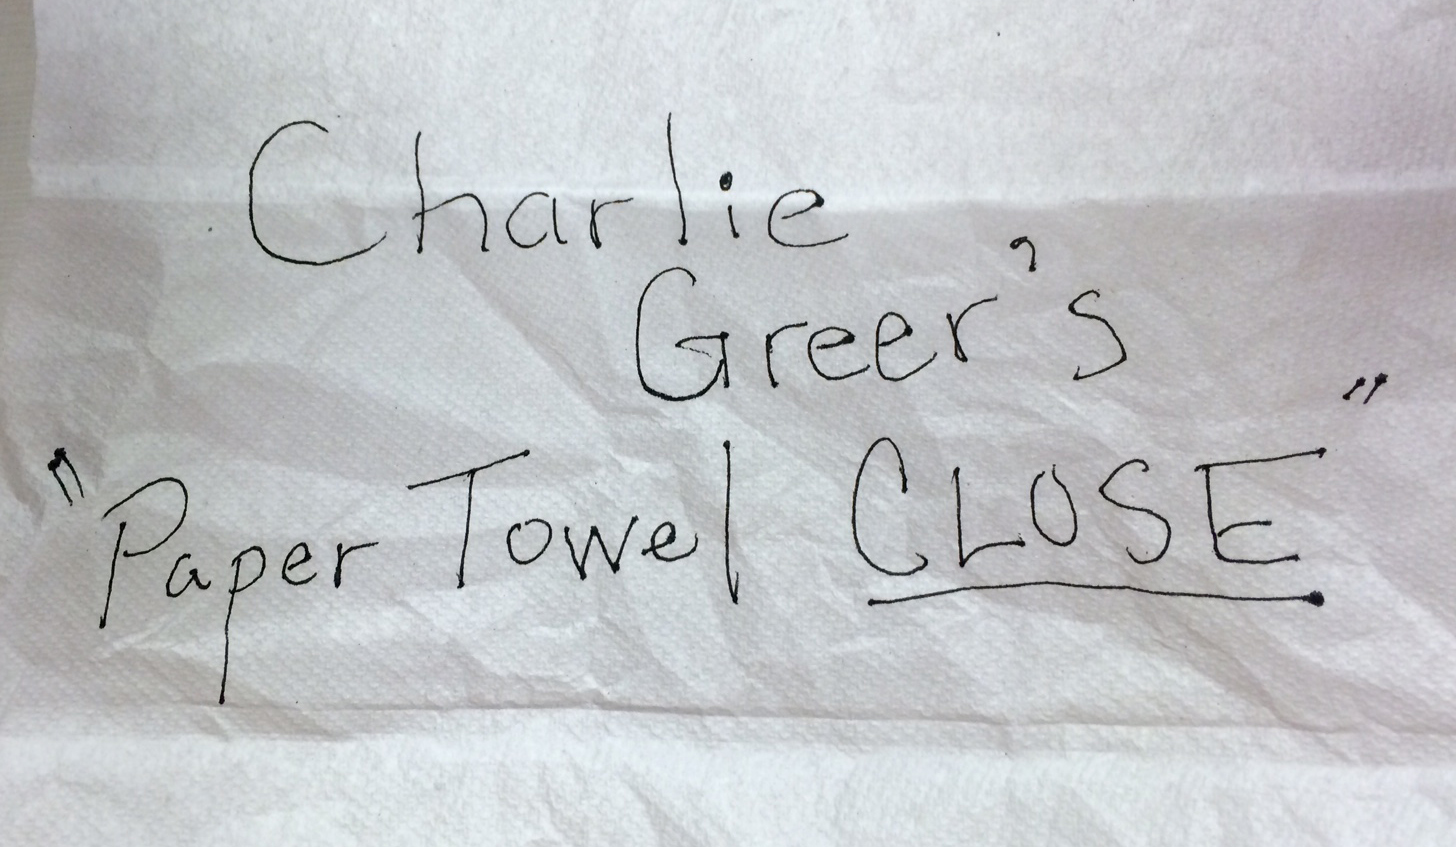 Charlie
Greer's
"Paper Towel CLOSE"